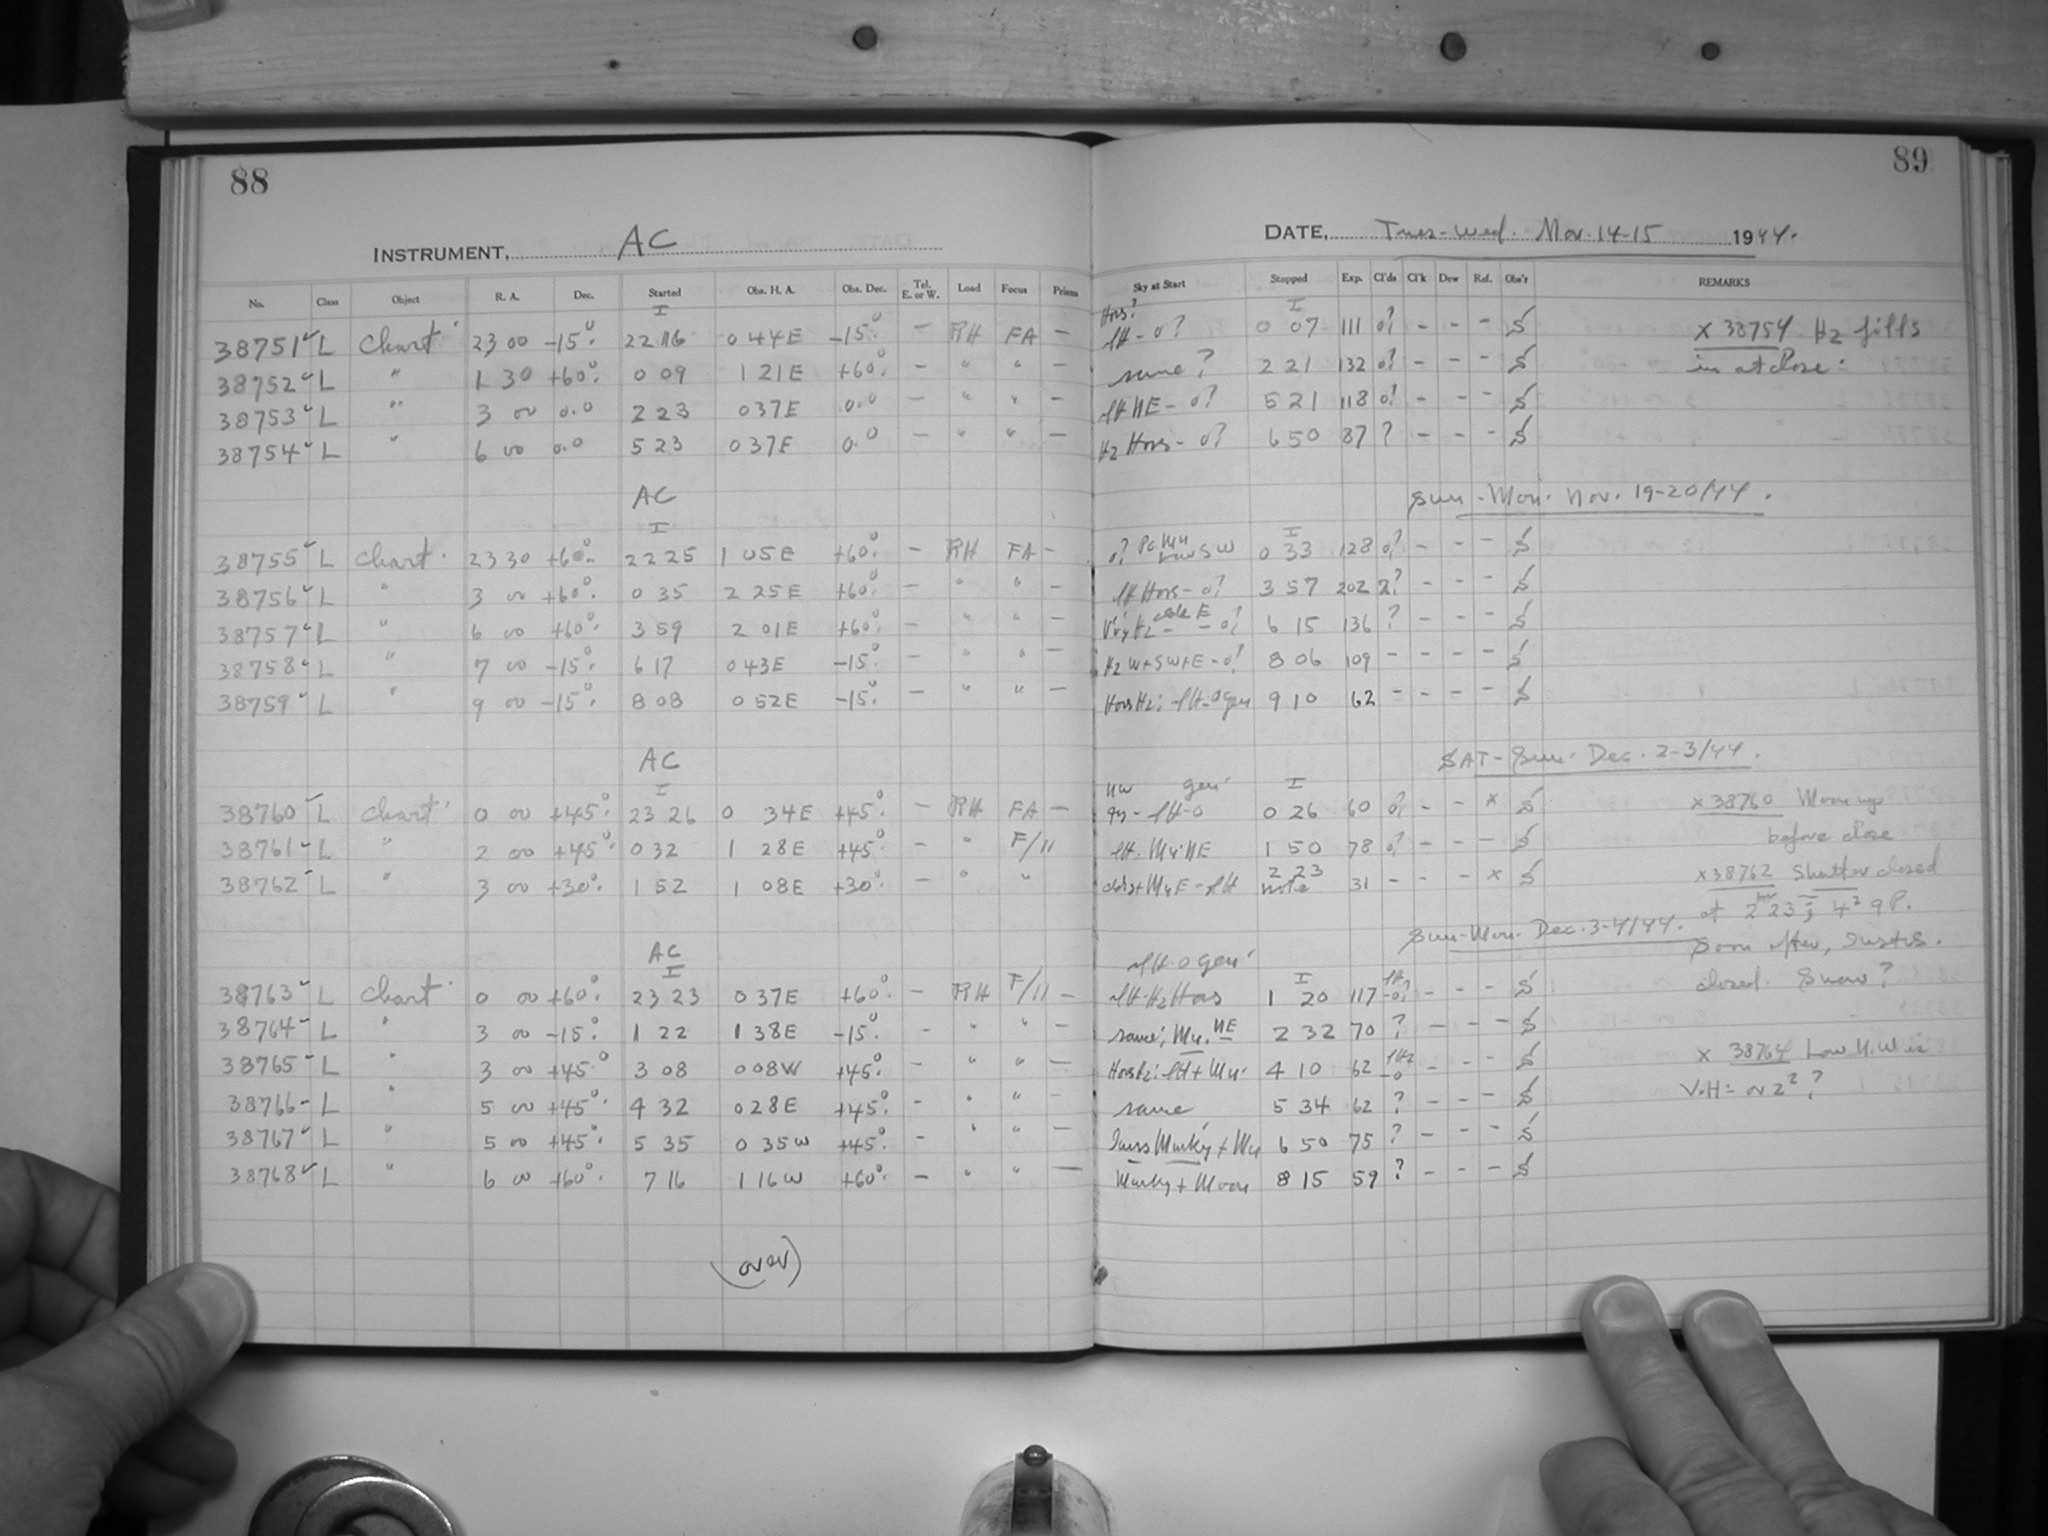 88
89
INSTRUMENT, AC
DATE, Tues-Wed. Nov. 14-15 1944.
No. Class Object R. A. Dec. Started Obs. H. A. Obs. Dec. Tel. E. or W. Load Focus Prisms Sky at Start Stopped Exp. Cl'ds Cl'k Dew Ref. Obs'r REMARKS
I Hors? I
38751 L Chart 23 00 -15° 22 16 0 44 E -15° - RH FA - lH-0? 0 07 111 0? - - - S x 38754 Hz fills
38752 L " 1 30 +60° 0 09 1 21 E +60° - " " - same? 2 21 132 0? - - - S in at close:
38753 L " 3 00 0.0 2 23 0 37 E 0.0 - " " - lH NE-0? 5 21 118 0? - - - S
38754 L " 6 00 0.0 5 23 0 37 E 0.0 - " " - Hz Hors-0? 6 50 87 ? - - - S
AC Sun-Mon. Nov. 19-20/44.
I I
38755 L Chart 23 30 +60° 22 25 1 05 E +60° - RH FA - 0? Low SW 0 33 128 0? - - - S
38756 L " 3 00 +60° 0 35 2 25 E +60° - " " - lH Hors-0? 3 57 202 2? - - - S
38757 L " 6 00 +60° 3 59 2 01 E +60° - " " - 0? 6 15 136 ? - - - S
38758 L " 7 00 -15° 6 17 0 43 E -15° - " " - Hz W+SW+E-0? 8 06 109 - - - - S
38759 L " 9 00 -15° 8 08 0 52 E -15° - " " - Hors Hz: lH-0 gen 9 10 62 - - - - S
AC SAT-Sun. Dec. 2-3/44.
I NW gen. I
38760 L Chart 0 00 +45° 23 26 0 34 E +45° - RH FA - lH-0 0 26 60 0? - - x S x 38760 Moon up
38761 L " 2 00 +45° 0 32 1 28 E +45° - " F/11 lH. NE 1 50 78 0? - - - S before close
38762 L " 3 00 +30° 1 52 1 08 E +30° - " " 2 23 note 31 - - - x S x 38762 Shutter closed
at 2 23; P.
AC Sun-Mon. Dec. 3-4/44. Soon after,
I lH-0 gen. I closed. Snow?
38763 L Chart 0 00 +60° 23 23 0 37 E +60° - RH F/11 - lH-Hz Hors 1 20 117 lH-0? - - - S
38764 L " 3 00 -15° 1 22 1 38 E -15° - " " - same; NE 2 32 70 ? - - - S
38765 L " 3 00 +45° 3 08 0 08 W +45° - " " - Hors Hz: lH + 4 10 62 - - - S x 38764 Low N.W is
38766 L " 5 00 +45° 4 32 0 28 E +45° - " " - same 5 34 62 ? - - - S V.H = or 2² ?
38767 L " 5 00 +45° 5 35 0 35 W +45° - " " - Murky + 6 50 75 ? - - - S
38768 L " 6 00 +60° 7 16 1 16 W +60° - " " - Murky + Moon 8 15 59 ? - - - S
(over)